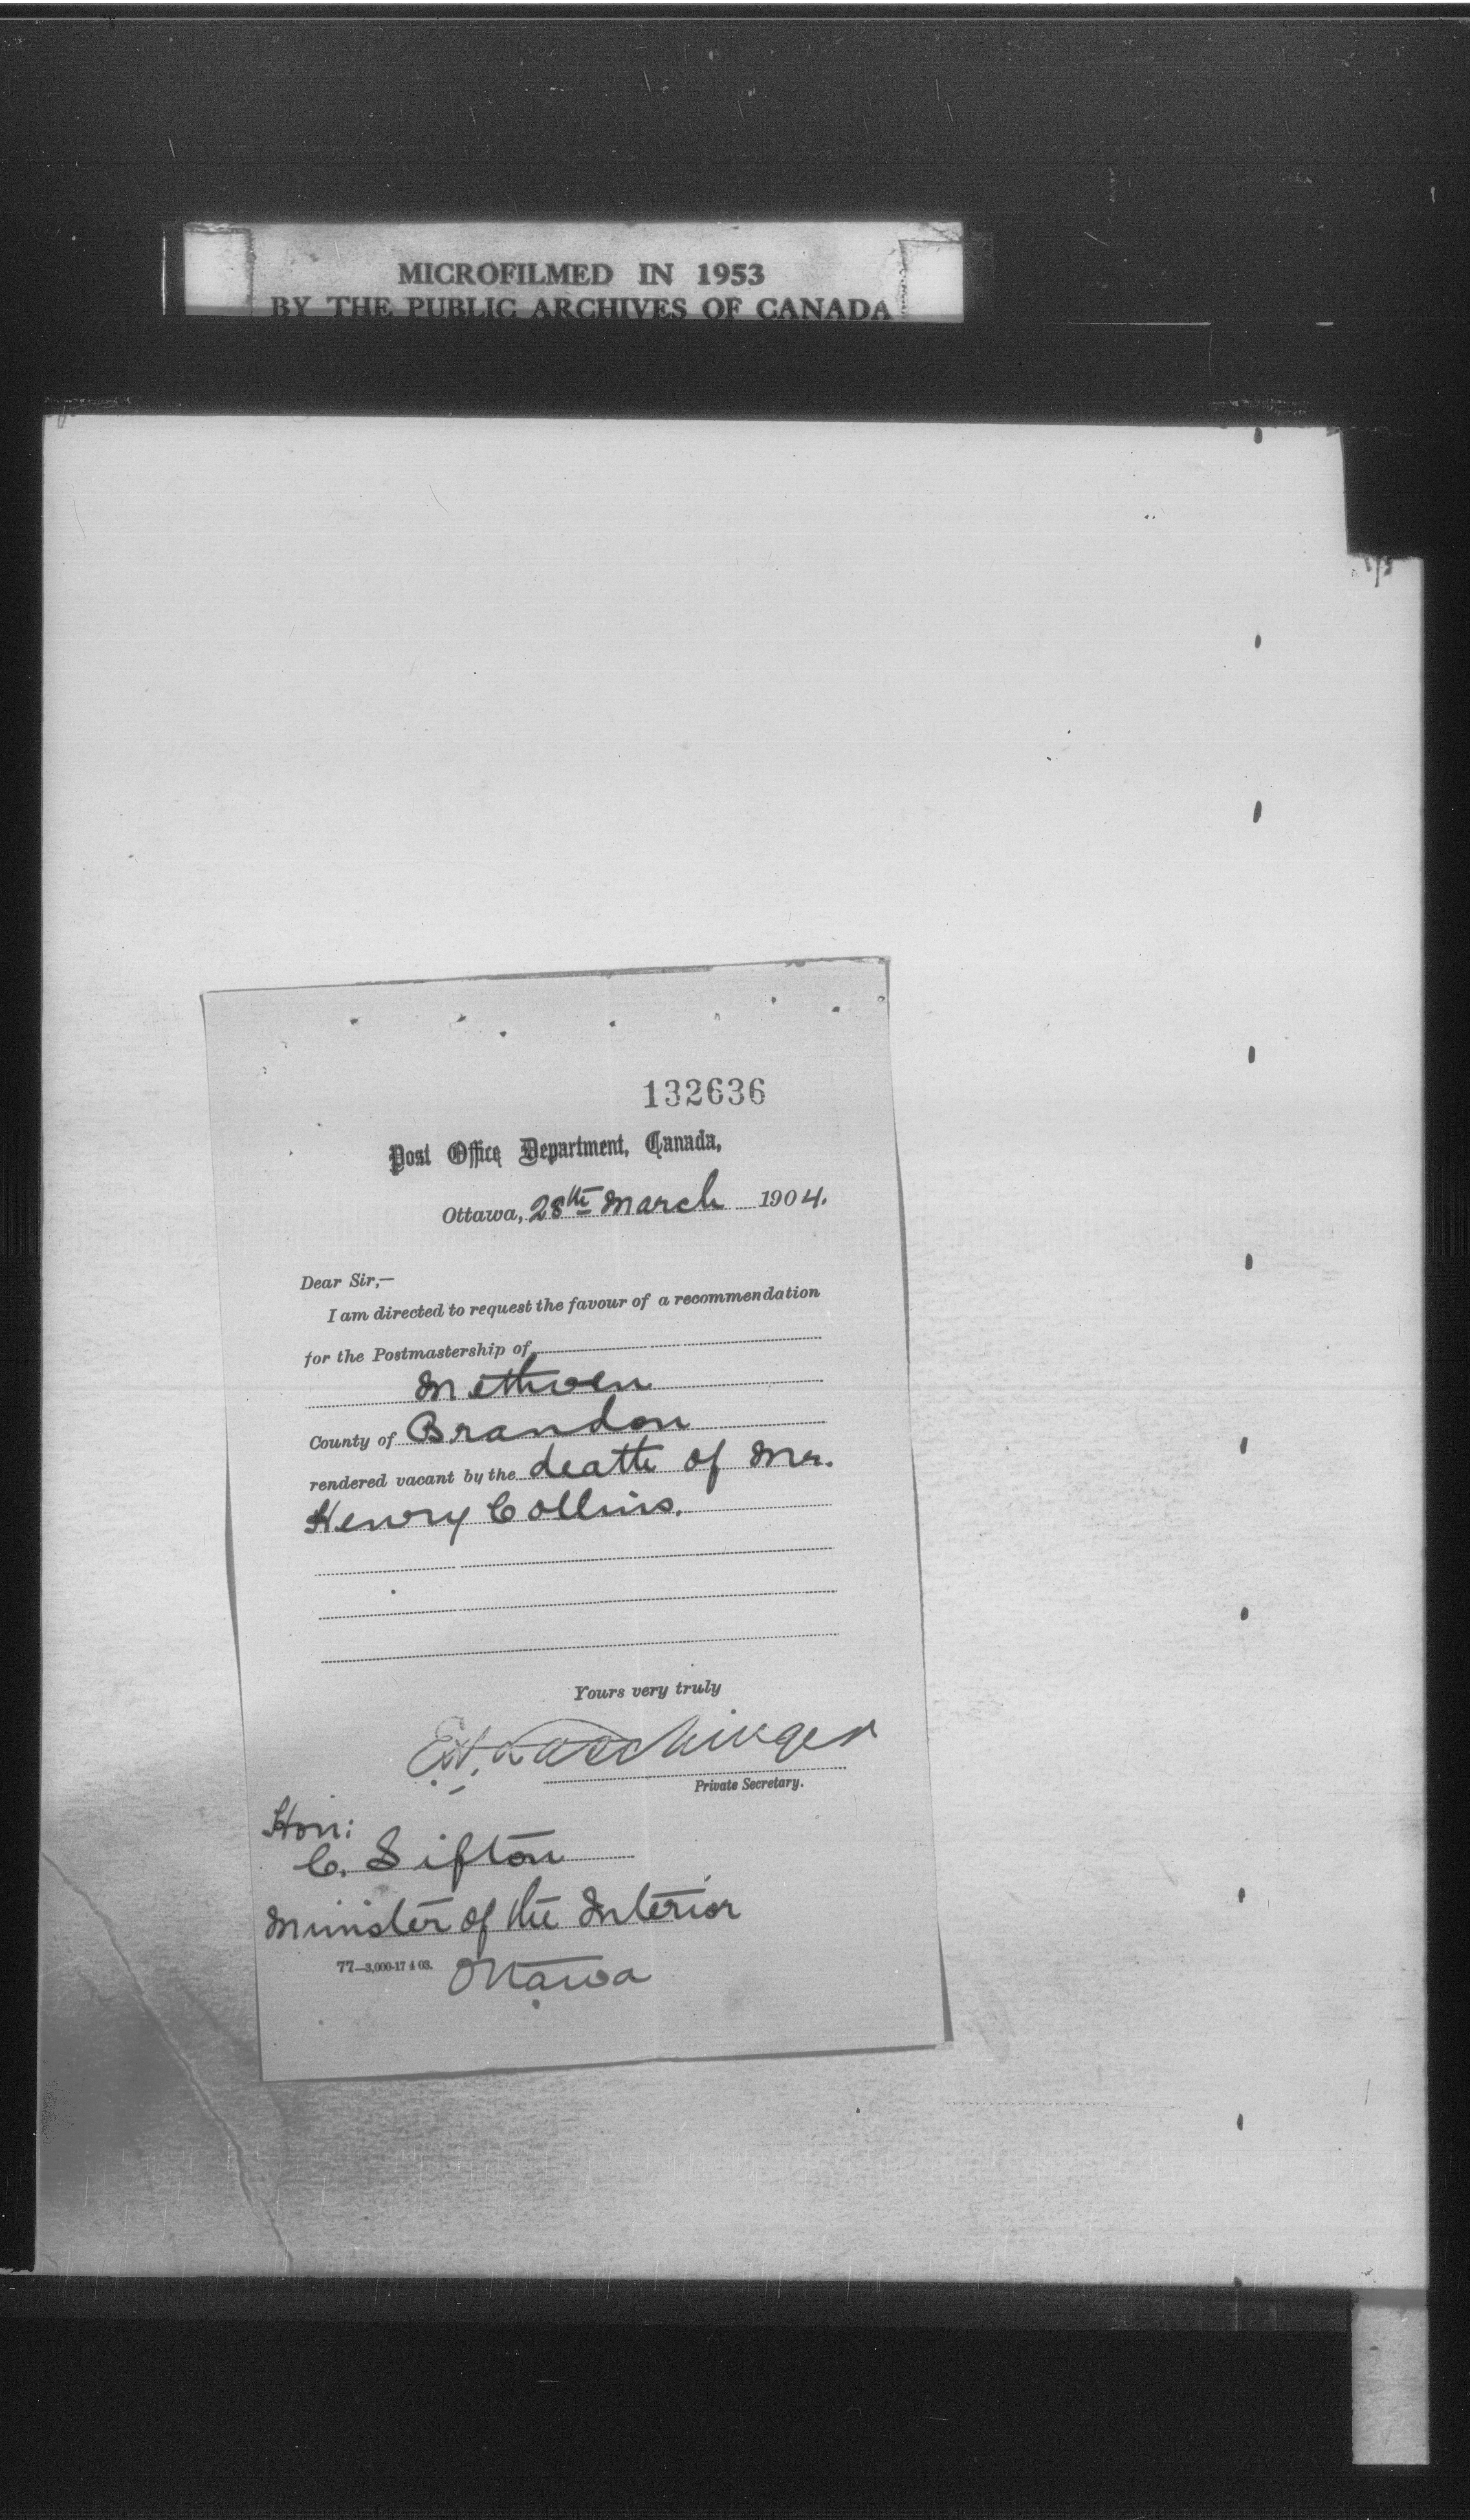 MICROFILMED IN 1953
BY THE PUBLIC ARCHIVES OF CANADA
132636
Post Office Department, Canada,
Ottawa, 28th March 1904.
Dear Sir,—
I am directed to request the favour of a recommendation
for the Postmastership of
Methven
County of Brandon
rendered vacant by the death of Mr.
Henry Collins.
Yours very truly
Private Secretary.
Hon:
C. Sifton
Minister of the Interior
77—3,000-17 4 03. Ottawa